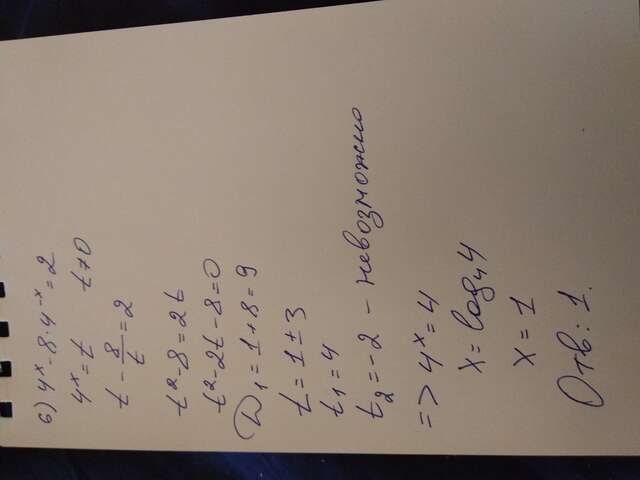 б) 4ˣ - 8 · 4⁻ˣ = 2
4ˣ = t t>0
t - 8/t = 2
t² - 8 = 2t
t² - 2t - 8 = 0
D₁ = 1 + 8 = 9
t = 1 ± 3
t₁ = 4
t₂ = -2 - невозможно
=> 4ˣ = 4
x = log₄4
x = 1
Отв: 1.